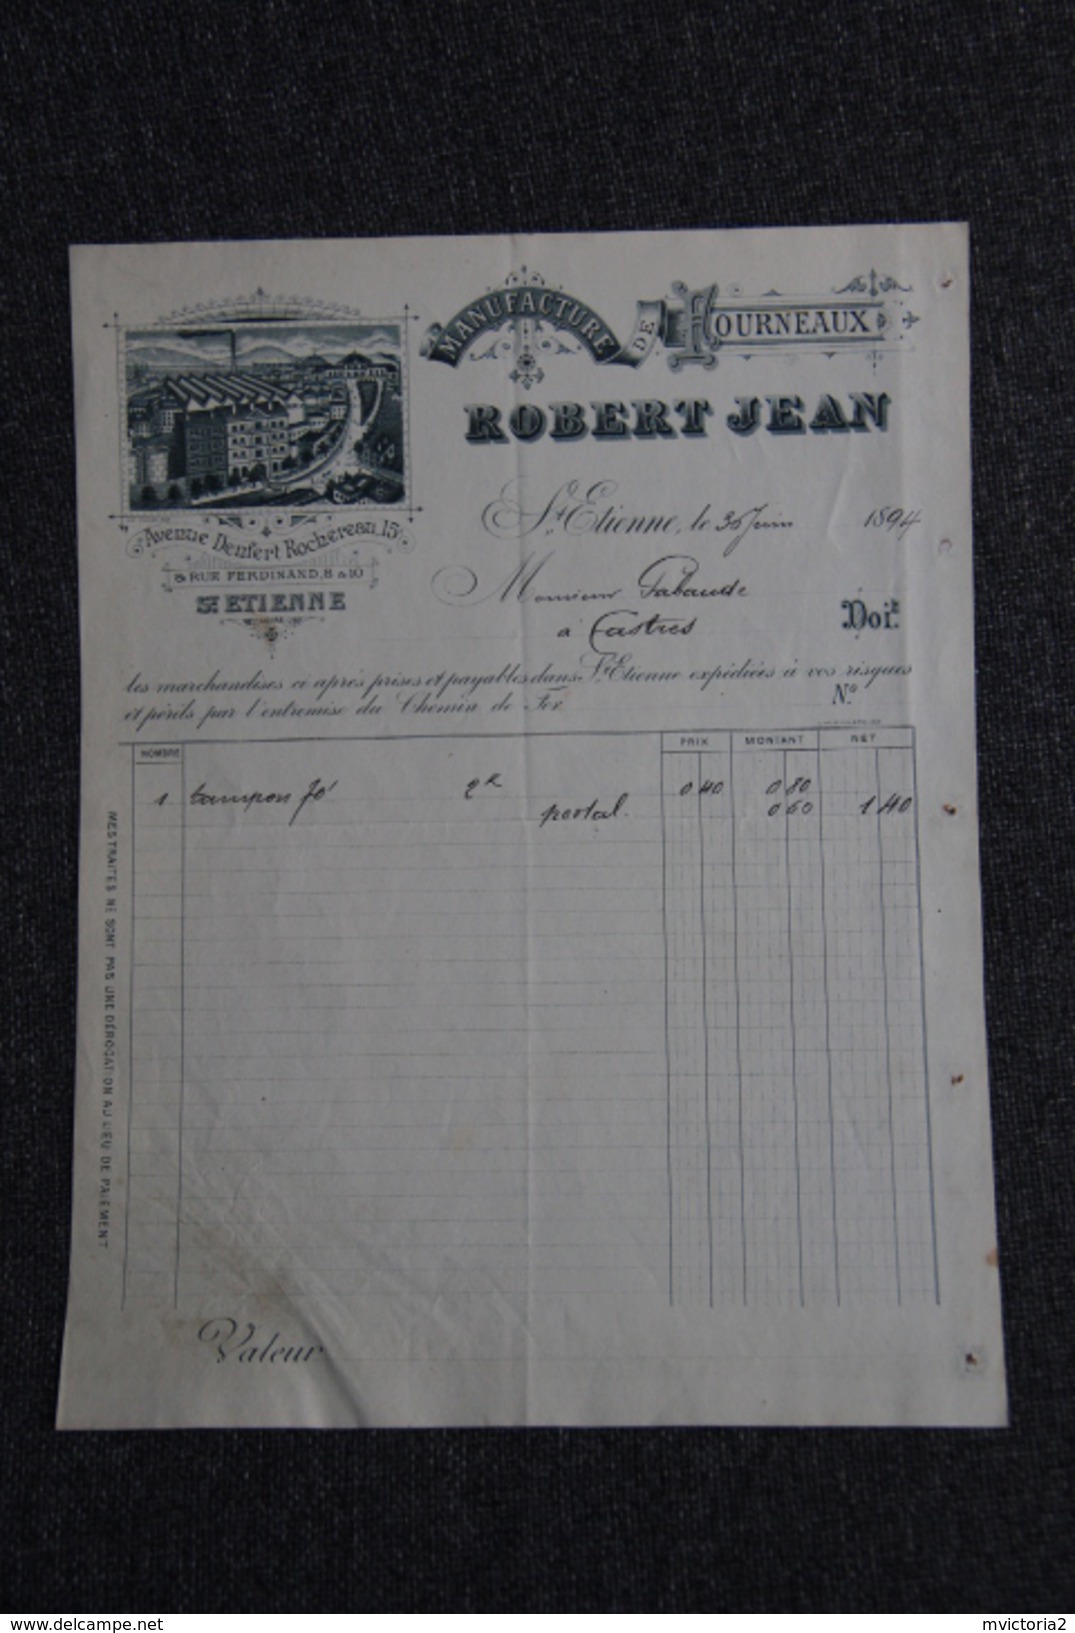 MANUFACTURE DE FOURNEAUX
ROBERT JEAN
Avenue Denfert Rochereau, 15
& RUE FERDINAND, 8 & 10
ST ETIENNE
St Etienne, le 30 Juin 1894
Monsieur Pabaude
à Castres
Doit
les marchandises ci après prises et payables dans St Etienne expédiées à vos risques
et périls par l'entremise du Chemin de Fer
No
NOMBRE PRIX MONTANT NET
1 tampon 2k 0 40 0 80
postal. 0 60 1 40
MES TRAITES NE SONT PAS UNE DÉROGATION AU LIEU DE PAIEMENT
Valeur
delcampe.net
mvictoria2